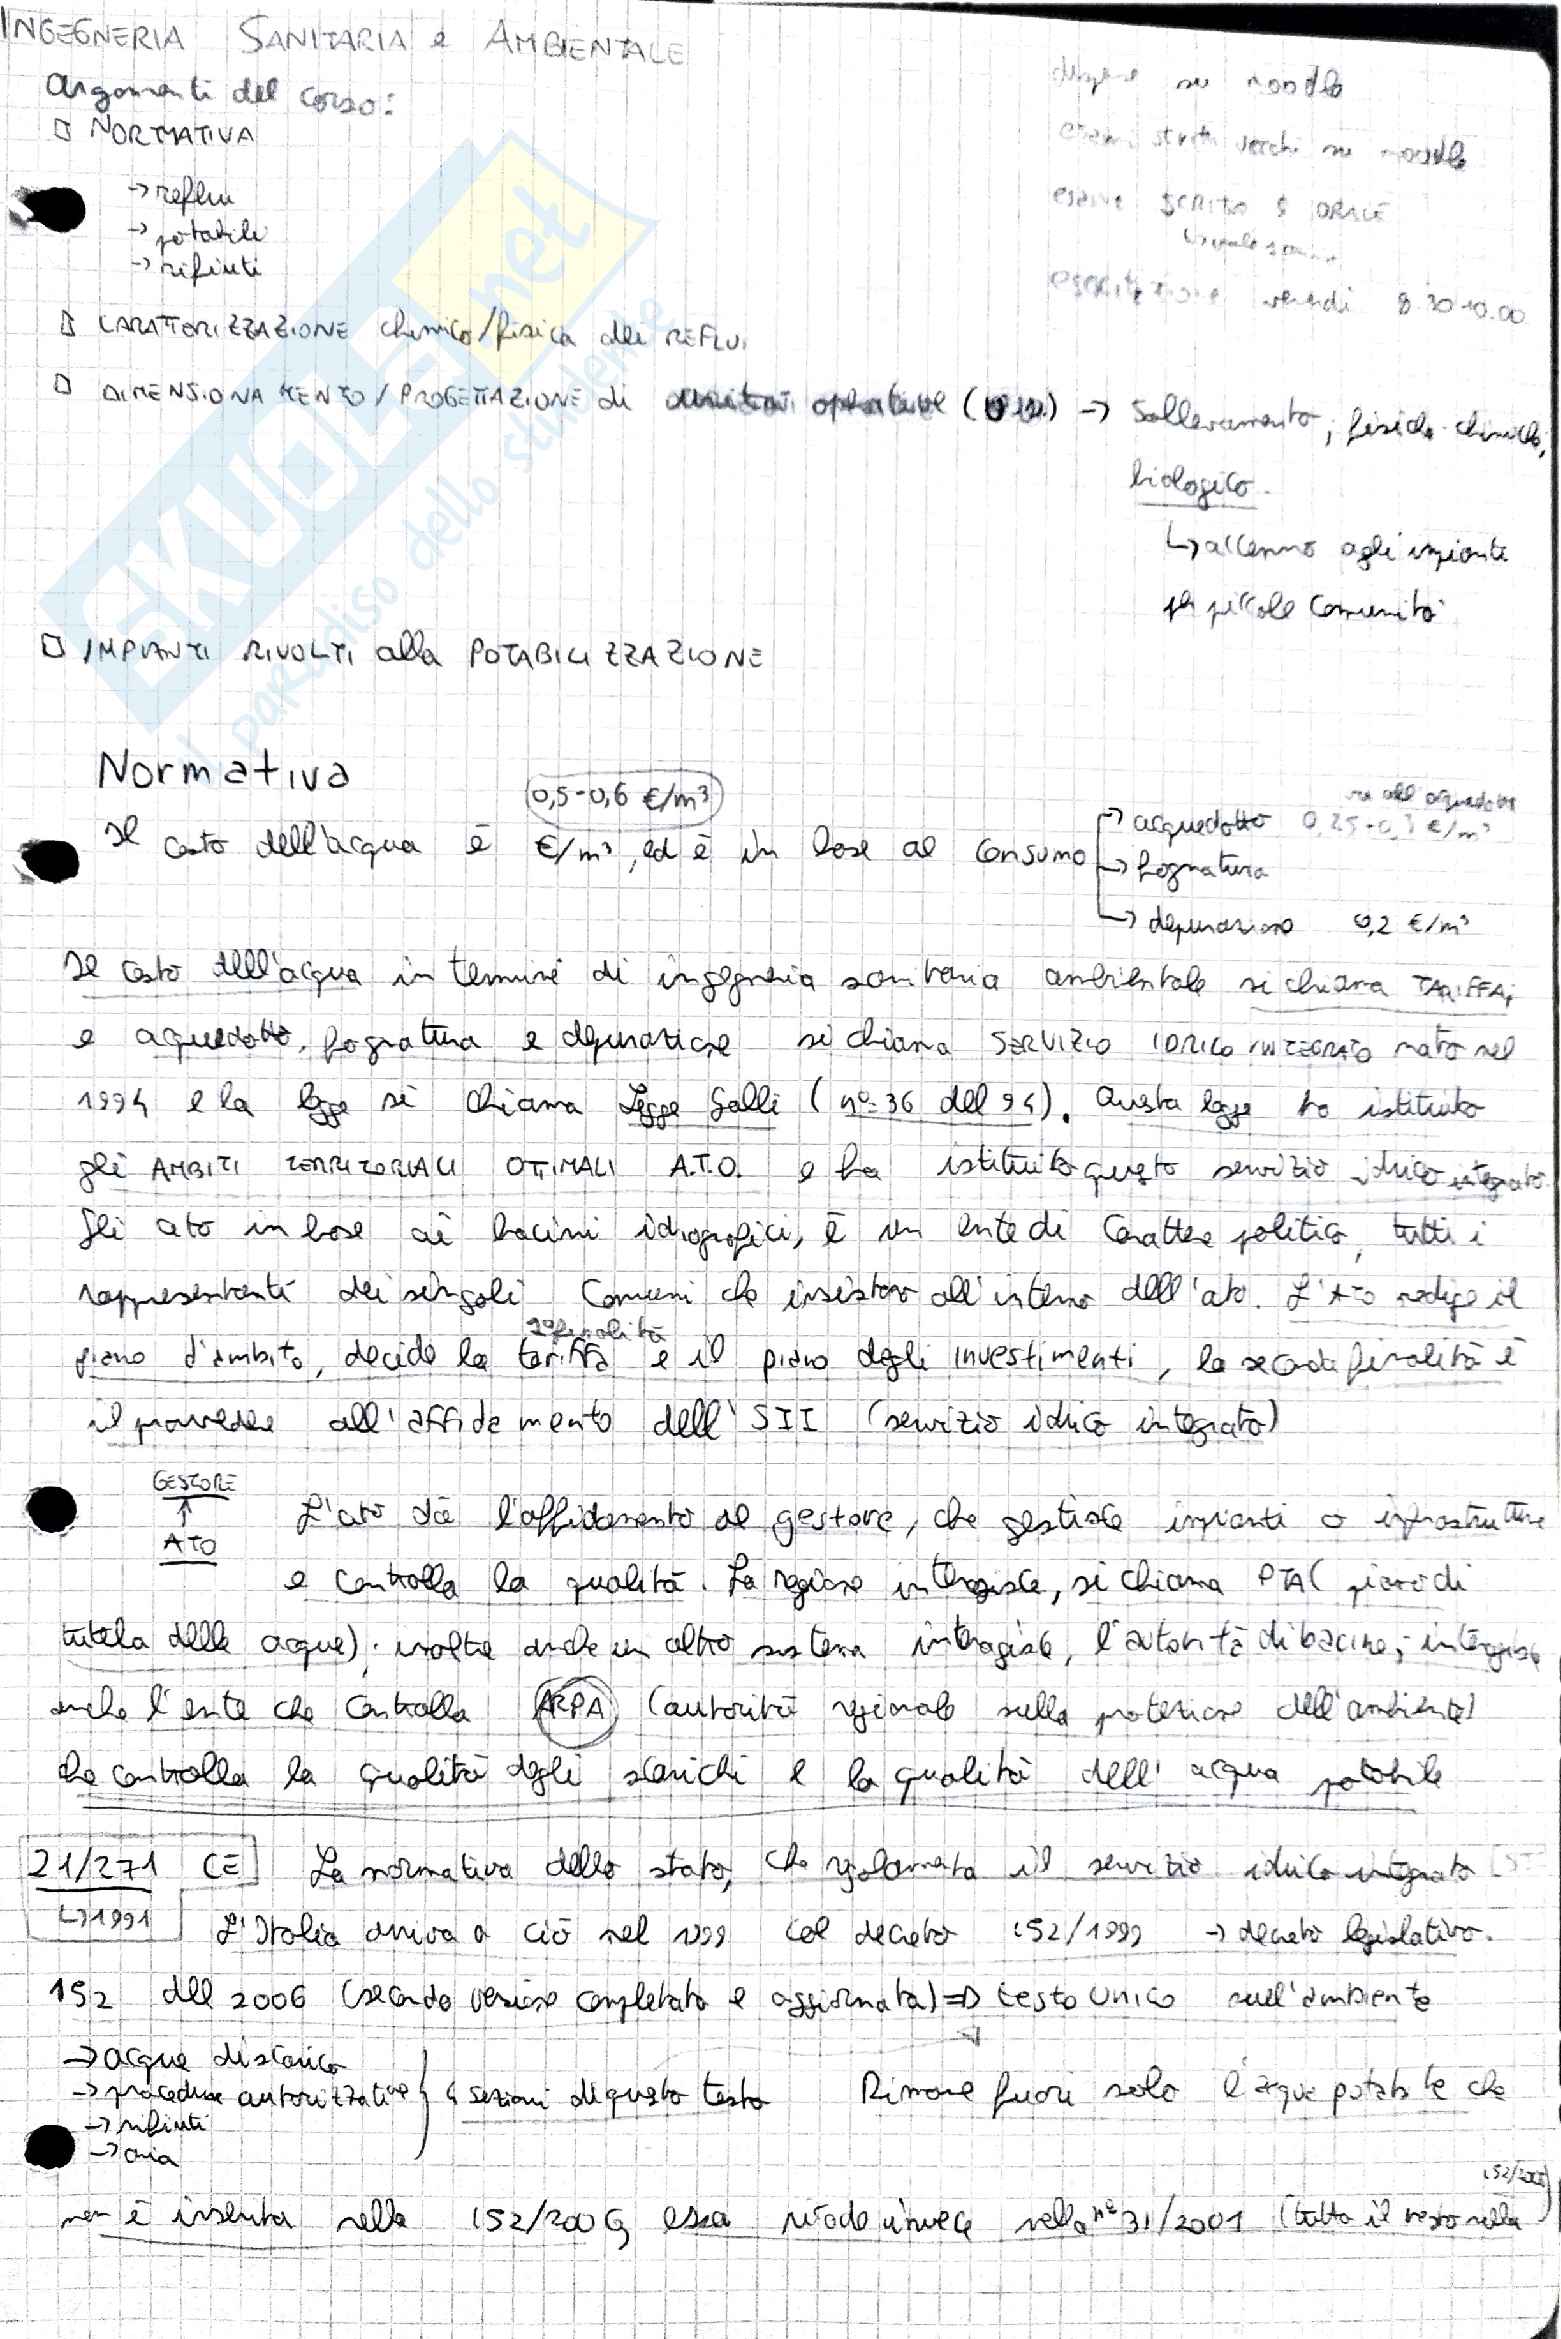 INGEGNERIA SANITARIA e AMBIENTALE
Argomenti del corso:
dispense su moodle
□ NORMATIVA
esami scritti vecchi su moodle
→ reflui
esame SCRITTO E ORALE
→ potabili
→ rifiuti
esercitazione venerdi 8.30-10.00
□ CARATTERIZZAZIONE chimico/fisica dei REFLUI
□ DIMENSIONAMENTO/PROGETTAZIONE di unità operative → Sollevamento, fisido-chimico,
biologico.
↳ accenno agli impianti
per piccole comunità
□ IMPIANTI RIVOLTI alla POTABILIZZAZIONE
SKUOLA.net
il paradiso dello studente
Normativa
0,5-0,6 €/m³
va all'acquedotto
→ acquedotto 0,25-0,3 €/m³
Il costo dell'acqua è €/m³, ed è in base al consumo
→ fognatura
→ depurazione 0,2 €/m³
Il costo dell'acqua in termine di ingegneria sanitaria ambientale si chiama TARIFFA,
e acquedotto, fognatura e depurazione si chiama SERVIZIO IDRICO INTEGRATO nato nel
1994 e la legge si chiama Legge Galli (n°36 del 94). Questa legge ha istituito
gli AMBITI TERRITORIALI OTTIMALI A.T.O. e ha istituito questo servizio idrico integrato.
Gli ato in base ai bacini idrografici, è un ente di carattere politico, tutti i
rappresentanti dei singoli Comuni che insistono all'interno dell'ato. L'ATO redige il
1°finalità
piano d'ambito, decide la tariffa e il piano degli investimenti, la seconda finalità è
il provvedere all'affidamento dell'SII (servizio idrico integrato)
GESTORE
↑
ATO
L'ato dà l'affidamento al gestore, che gestisce impianti o infrastrutture
e controlla la qualità. La regione interagisce, si chiama PTA (piano di
tutela delle acque); inoltre anche un altro sistema interagisce, l'autorità di bacino; interagisce
anche l'ente che controlla ARPA (autorità regionale sulla protezione dell'ambiente)
che controlla la qualità degli scarichi e la qualità dell'acqua potabile
21/271 CE La normativa dello stato, che regolamenta il servizio idrico integrato
↳ 1991 L'Italia arriva a ciò nel 1999 col decreto 152/1999 → decreto legislativo.
152 del 2006 (seconda versione completata e aggiornata) ⇒ testo unico sull'ambiente
→ acque di scarico
→ procedure autorizzative
→ rifiuti
→ aria
4 sezioni di questo testo Rimane fuori solo l'acqua potabile che
152/2006)
non è inserita nella 152/2006, essa ricade invece nella n°31/2001 (tutto il resto nella